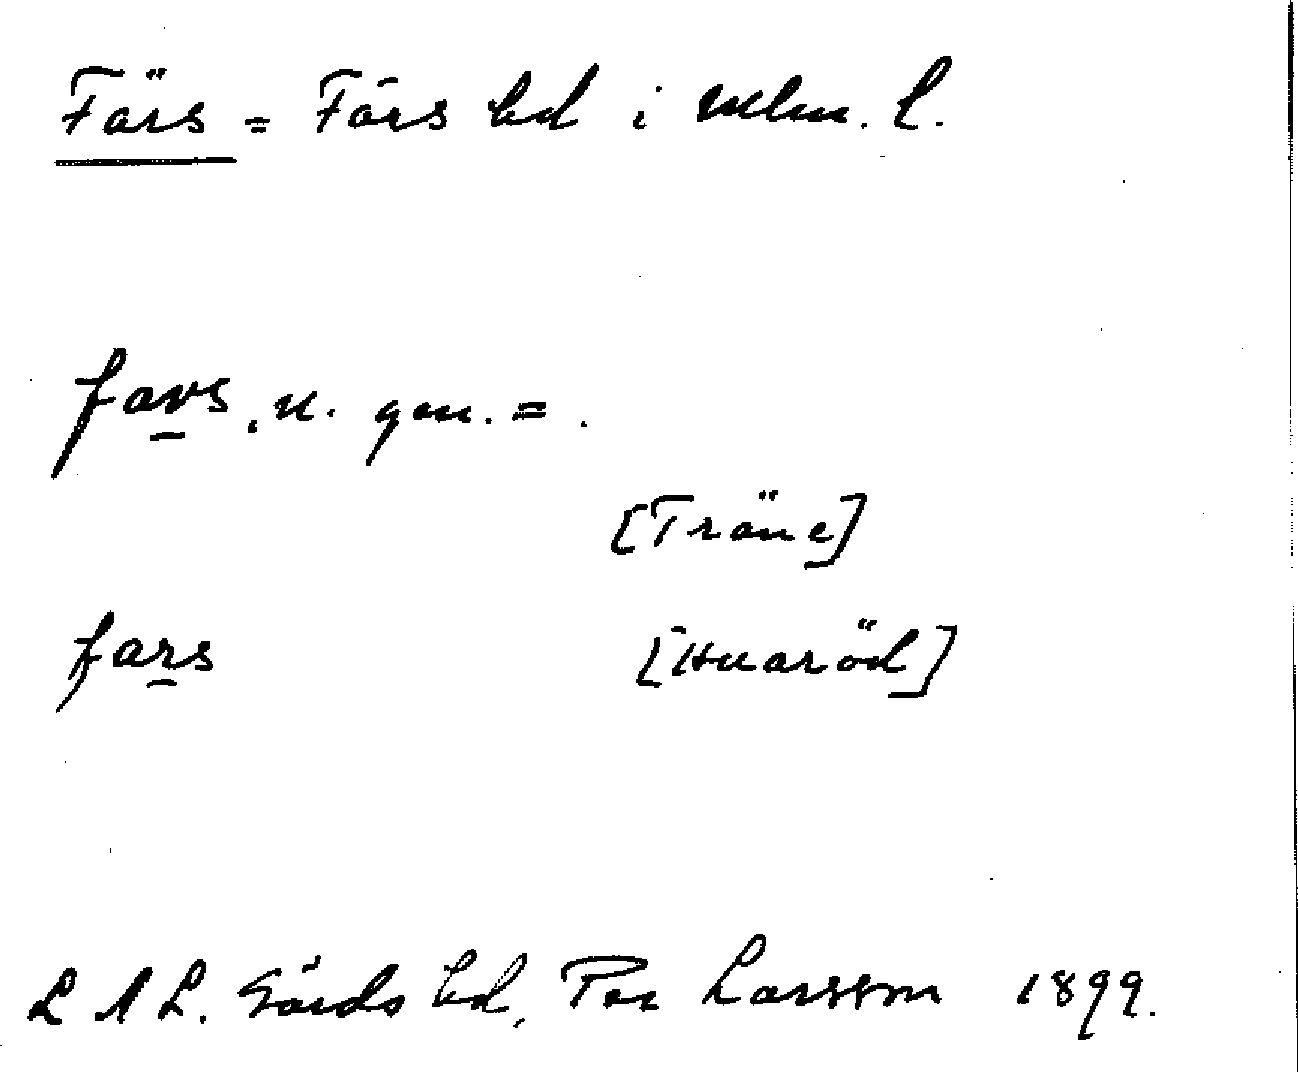 Färs = Färs hd i Mlm. l.
fars, u. gen. = .
[Träne]
fars [Huaröd]
L A L. Gärds hd, Per Larsson 1899.